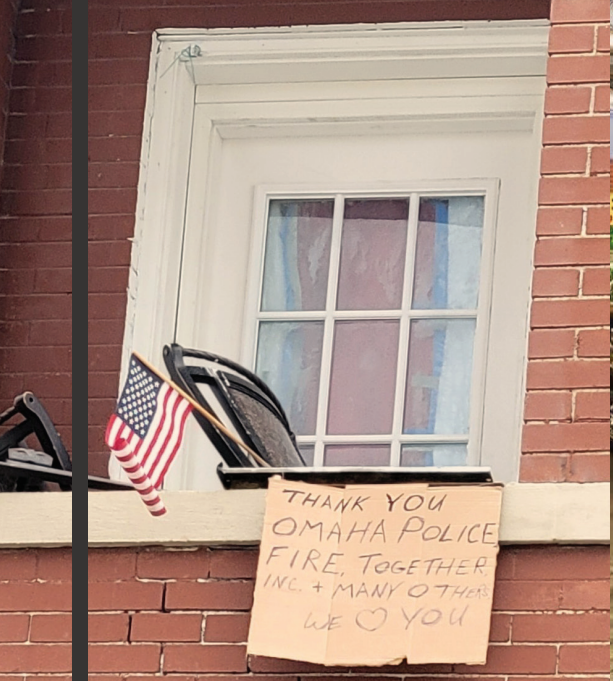 THANK YOU
OMAHA POLICE
FIRE, TOGETHER,
INC. + MANY OTHERS
WE ♡ YOU